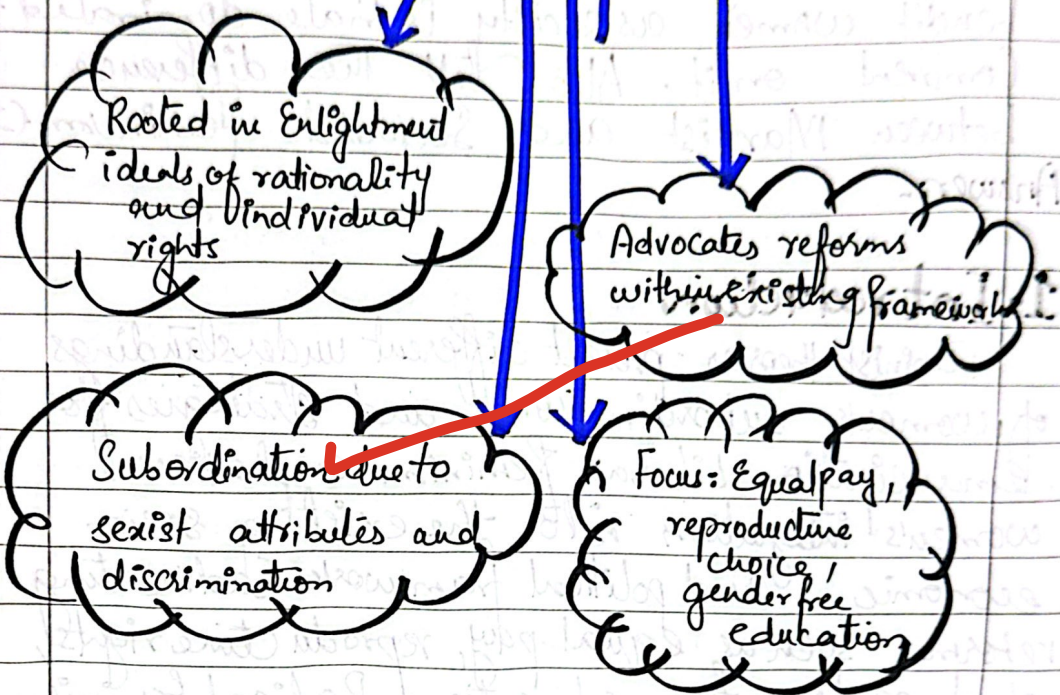 Rooted in Enlightment
ideals of rationality
and individual
rights
Advocates reforms
within existing framework
Subordination due to
sexist attributes and
discrimination
Focus: Equal pay,
reproductive
choice,
gender free
education